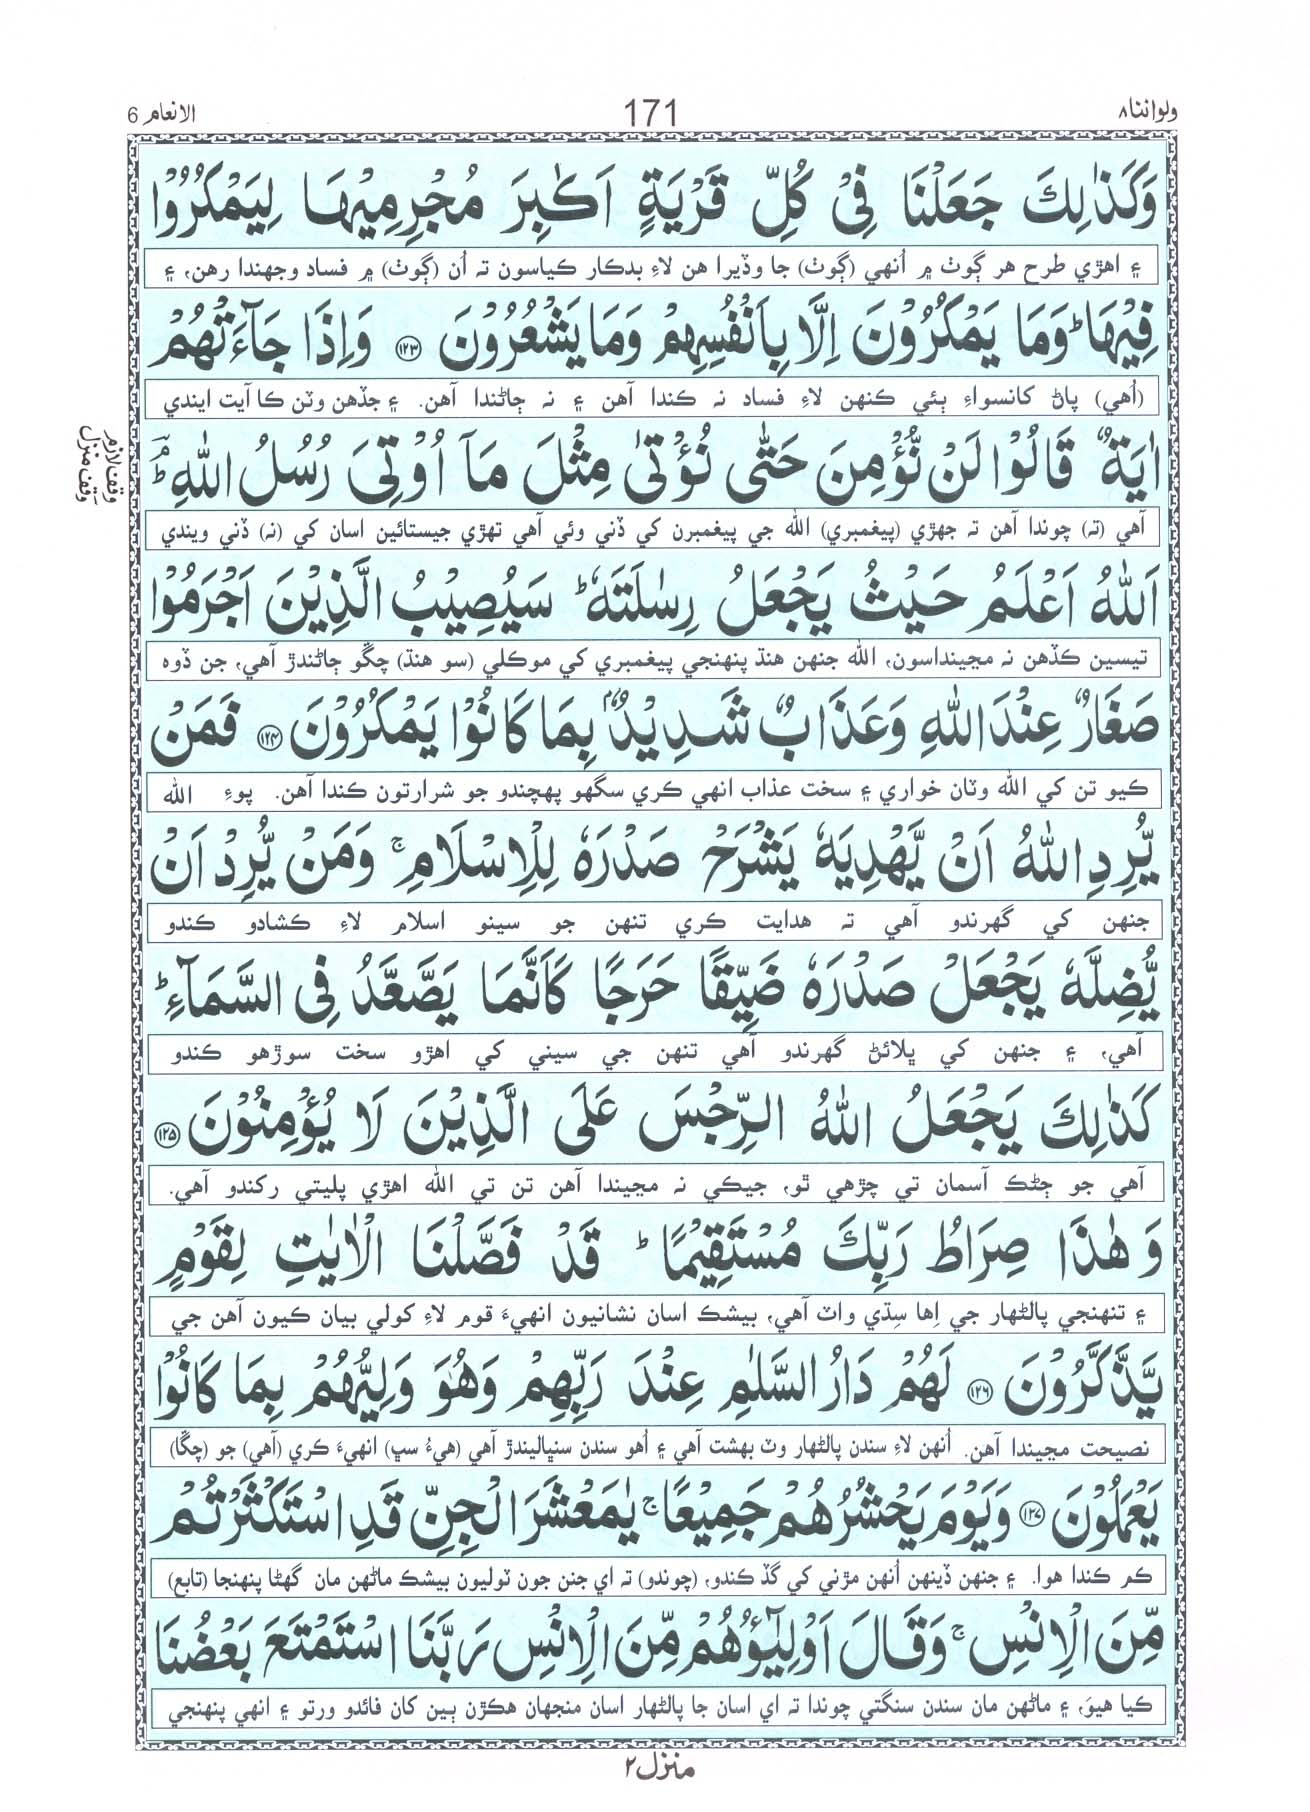 ولواننا ٨
171
الانعام 6
وَكَذٰلِكَ جَعَلْنَا فِيْ كُلِّ قَرْيَةٍ اَكٰبِرَ مُجْرِمِيْهَا لِيَمْكُرُوْا
۽ اهڙي طرح هر ڳوٺ ۾ اُنهي (ڳوٺ) جا وڏيرا هن لاءِ بدڪار ڪياسون ته اُن (ڳوٺ) ۾ فساد وجهندا رهن، ۽
فِيْهَا ؕ وَمَا يَمْكُرُوْنَ اِلَّا بِاَنْفُسِهِمْ وَمَا يَشْعُرُوْنَ ۝۱۲۳ وَاِذَا جَآءَتْهُمْ
(اُهي) پاڻ کانسواءِ ٻئي ڪنهن لاءِ فساد نه ڪندا آهن ۽ نه ڄاڻندا آهن. ۽ جڏهن وٽن ڪا آيت ايندي
اٰيَةٌ قَالُوْا لَنْ نُّؤْمِنَ حَتّٰى نُؤْتٰى مِثْلَ مَآ اُوْتِيَ رُسُلُ اللّٰهِ ؔۘؕ
وقف لازم
وقف منزل
آهي (ته) چوندا آهن ته جهڙي (پيغمبري) الله جي پيغمبرن کي ڏني وئي آهي تهڙي جيستائين اسان کي (نه) ڏني ويندي
اَللّٰهُ اَعْلَمُ حَيْثُ يَجْعَلُ رِسٰلَتَهٗ ؕ سَيُصِيْبُ الَّذِيْنَ اَجْرَمُوْا
تيسين ڪڏهن نه مڃينداسون، الله جنهن هنڌ پنهنجي پيغمبري کي موڪلي (سو هنڌ) چڱو ڄاڻندڙ آهي، جن ڏوه
صَغَارٌ عِنْدَ اللّٰهِ وَعَذَابٌ شَدِيْدٌۢ بِمَا كَانُوْا يَمْكُرُوْنَ ۝۱۲۴ فَمَنْ
ڪيو تن کي الله وٽان خواري ۽ سخت عذاب انهي ڪري سگهو پهچندو جو شرارتون ڪندا آهن. پوءِ الله
يُّرِدِ اللّٰهُ اَنْ يَّهْدِيَهٗ يَشْرَحْ صَدْرَهٗ لِلْاِسْلَامِ ۚ وَمَنْ يُّرِدْ اَنْ
جنهن کي گهرندو آهي ته هدايت ڪري تنهن جو سينو اسلام لاءِ ڪشادو ڪندو
يُّضِلَّهٗ يَجْعَلْ صَدْرَهٗ ضَيِّقًا حَرَجًا كَاَنَّمَا يَصَّعَّدُ فِي السَّمَآءِ ؕ
آهي، ۽ جنهن کي ڀلائڻ گهرندو آهي تنهن جي سيني کي اهڙو سخت سوڙهو ڪندو
كَذٰلِكَ يَجْعَلُ اللّٰهُ الرِّجْسَ عَلَى الَّذِيْنَ لَا يُؤْمِنُوْنَ ۝۱۲۵
آهي جو ڄڻڪ آسمان تي چڙهي ٿو، جيڪي نه مڃيندا آهن تن تي الله اهڙي پليتي رکندو آهي.
وَهٰذَا صِرَاطُ رَبِّكَ مُسْتَقِيْمًا ؕ قَدْ فَصَّلْنَا الْاٰيٰتِ لِقَوْمٍ
۽ تنهنجي پالڻهار جي اِها سِڌي واٽ آهي، بيشڪ اسان نشانيون انهيءَ قوم لاءِ کولي بيان ڪيون آهن جي
يَّذَّكَّرُوْنَ ۝۱۲۶ لَهُمْ دَارُ السَّلٰمِ عِنْدَ رَبِّهِمْ وَهُوَ وَلِيُّهُمْ بِمَا كَانُوْا
نصيحت مڃيندا آهن. اُنهن لاءِ سندن پالڻهار وٽ بهشت آهي ۽ اُهو سندن سنڀاليندڙ آهي (هيءُ سڀ) انهيءَ ڪري (آهي) جو (چڱا)
يَعْمَلُوْنَ ۝۱۲۷ وَيَوْمَ يَحْشُرُهُمْ جَمِيْعًا ۚ يٰمَعْشَرَ الْجِنِّ قَدِ اسْتَكْثَرْتُمْ
ڪم ڪندا هوا. ۽ جنهن ڏينهن اُنهن مڙني کي گڏ ڪندو، (چوندو) ته اي جنن جون ٽوليون بيشڪ ماڻهن مان گهڻا پنهنجا (تابع)
مِّنَ الْاِنْسِ ۚ وَقَالَ اَوْلِيٰٓؤُهُمْ مِّنَ الْاِنْسِ رَبَّنَا اسْتَمْتَعَ بَعْضُنَا
ڪيا هيوَ، ۽ ماڻهن مان سندن سنگتي چوندا ته اي اسان جا پالڻهار اسان منجهان هڪڙن ٻين کان فائدو ورتو ۽ انهي پنهنجي
منزل ٢